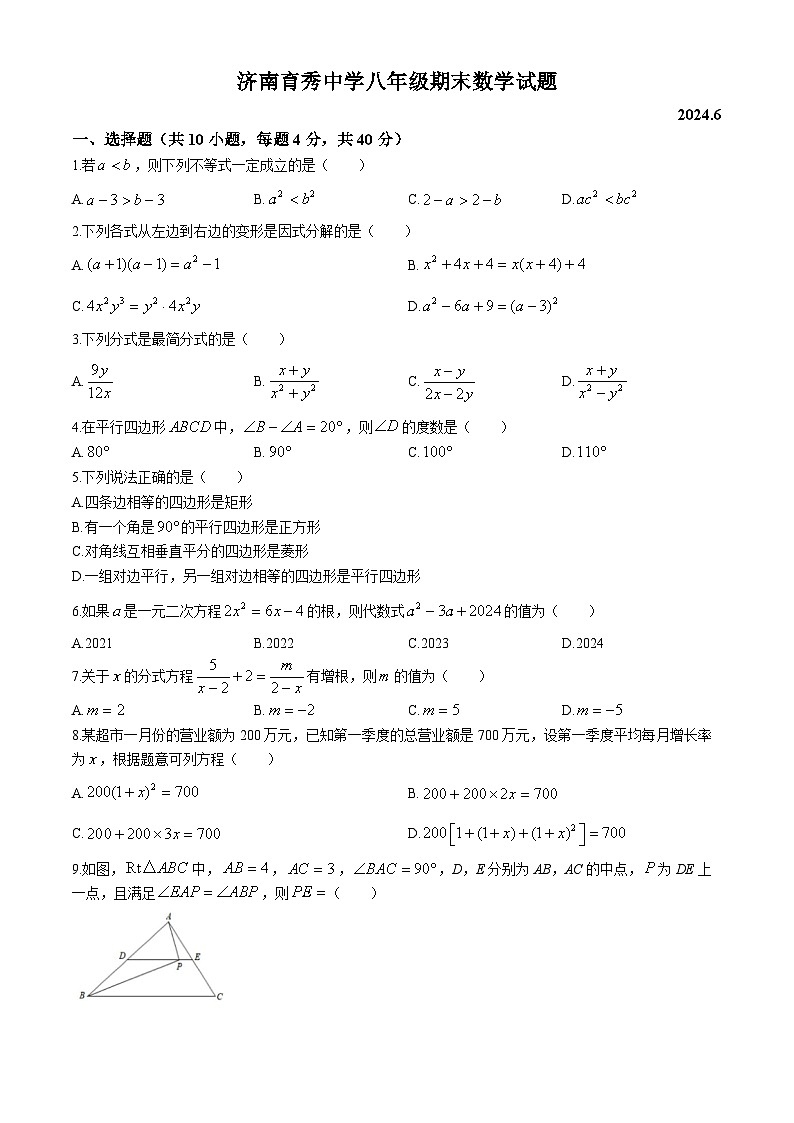 济南育秀中学八年级期末数学试题
2024.6
一、选择题（共10小题，每题4分，共40分）
1.若 a < b，则下列不等式一定成立的是（　　）
A. a − 3 > b − 3　B. a² < b²　C. 2 − a > 2 − b　D. ac² < bc²
2.下列各式从左边到右边的变形是因式分解的是（　　）
A. (a+1)(a−1) = a² − 1　B. x² + 4x + 4 = x(x+4) + 4
C. 4x²y³ = y² · 4x²y　D. a² − 6a + 9 = (a−3)²
3.下列分式是最简分式的是（　　）
A. 9y/12x　B. (x+y)/(x²+y²)　C. (x−y)/(2x−2y)　D. (x+y)/(x²−y²)
4.在平行四边形 ABCD 中，∠B − ∠A = 20°，则∠D 的度数是（　　）
A. 80°　B. 90°　C. 100°　D. 110°
5.下列说法正确的是（　　）
A.四条边相等的四边形是矩形
B.有一个角是 90° 的平行四边形是正方形
C.对角线互相垂直平分的四边形是菱形
D.一组对边平行，另一组对边相等的四边形是平行四边形
6.如果 a 是一元二次方程 2x² = 6x − 4 的根，则代数式 a² − 3a + 2024 的值为（　　）
A.2021　B.2022　C.2023　D.2024
7.关于 x 的分式方程 5/(x−2) + 2 = m/(2−x) 有增根，则 m 的值为（　　）
A. m = 2　B. m = −2　C. m = 5　D. m = −5
8.某超市一月份的营业额为 200 万元，已知第一季度的总营业额是 700 万元，设第一季度平均每月增长率
为 x，根据题意可列方程（　　）
A. 200(1+x)² = 700　B. 200 + 200×2x = 700
C. 200 + 200×3x = 700　D. 200[1+(1+x)+(1+x)²] = 700
9.如图，Rt△ABC 中，AB = 4，AC = 3，∠BAC = 90°，D，E 分别为 AB，AC 的中点，P 为 DE 上
一点，且满足∠EAP = ∠ABP，则 PE =（　　）
A
D
P
E
B
C